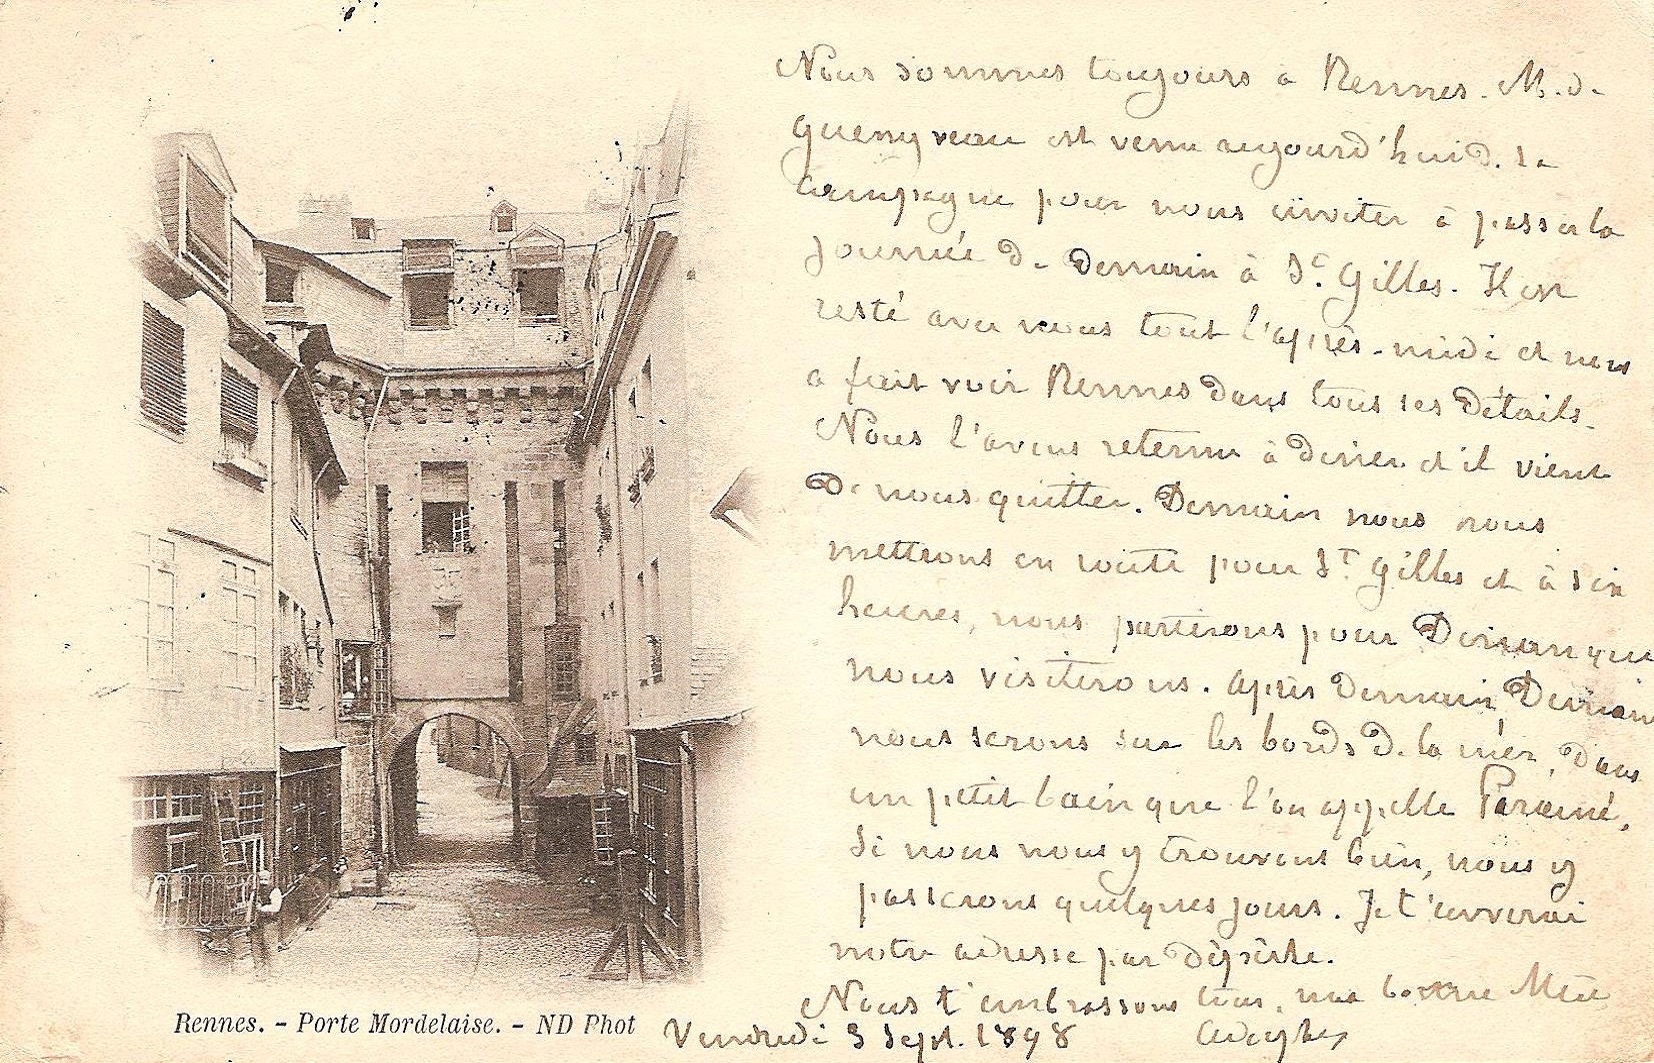 Nous sommes toujours à Rennes. M. de
Guenyveau est venu aujourd'hui d. sa
campagne pour nous inviter à passer la
journée de demain à St. Gilles. Il est
resté avec nous tout l'après-midi et nous
a fait voir Rennes dans tous ses détails.
Nous l'avons retenu à dîner et il vient
de nous quitter. Demain nous nous
mettrons en route pour St Gilles et à six
heures, nous partirons pour Dinan que
nous visiterons. Après demain, Demain
nous serons sur les bords de la mer, dans
un petit bain que l'on appelle Paramé,
Si nous nous y trouvons bien, nous y
passerons quelques jours. Je t'enverrai
notre adresse par dépêche.
Nous t'embrassons tous, ma bonne Mère
Vendredi 3 Sept. 1898
Rennes. - Porte Mordelaise. - ND Phot